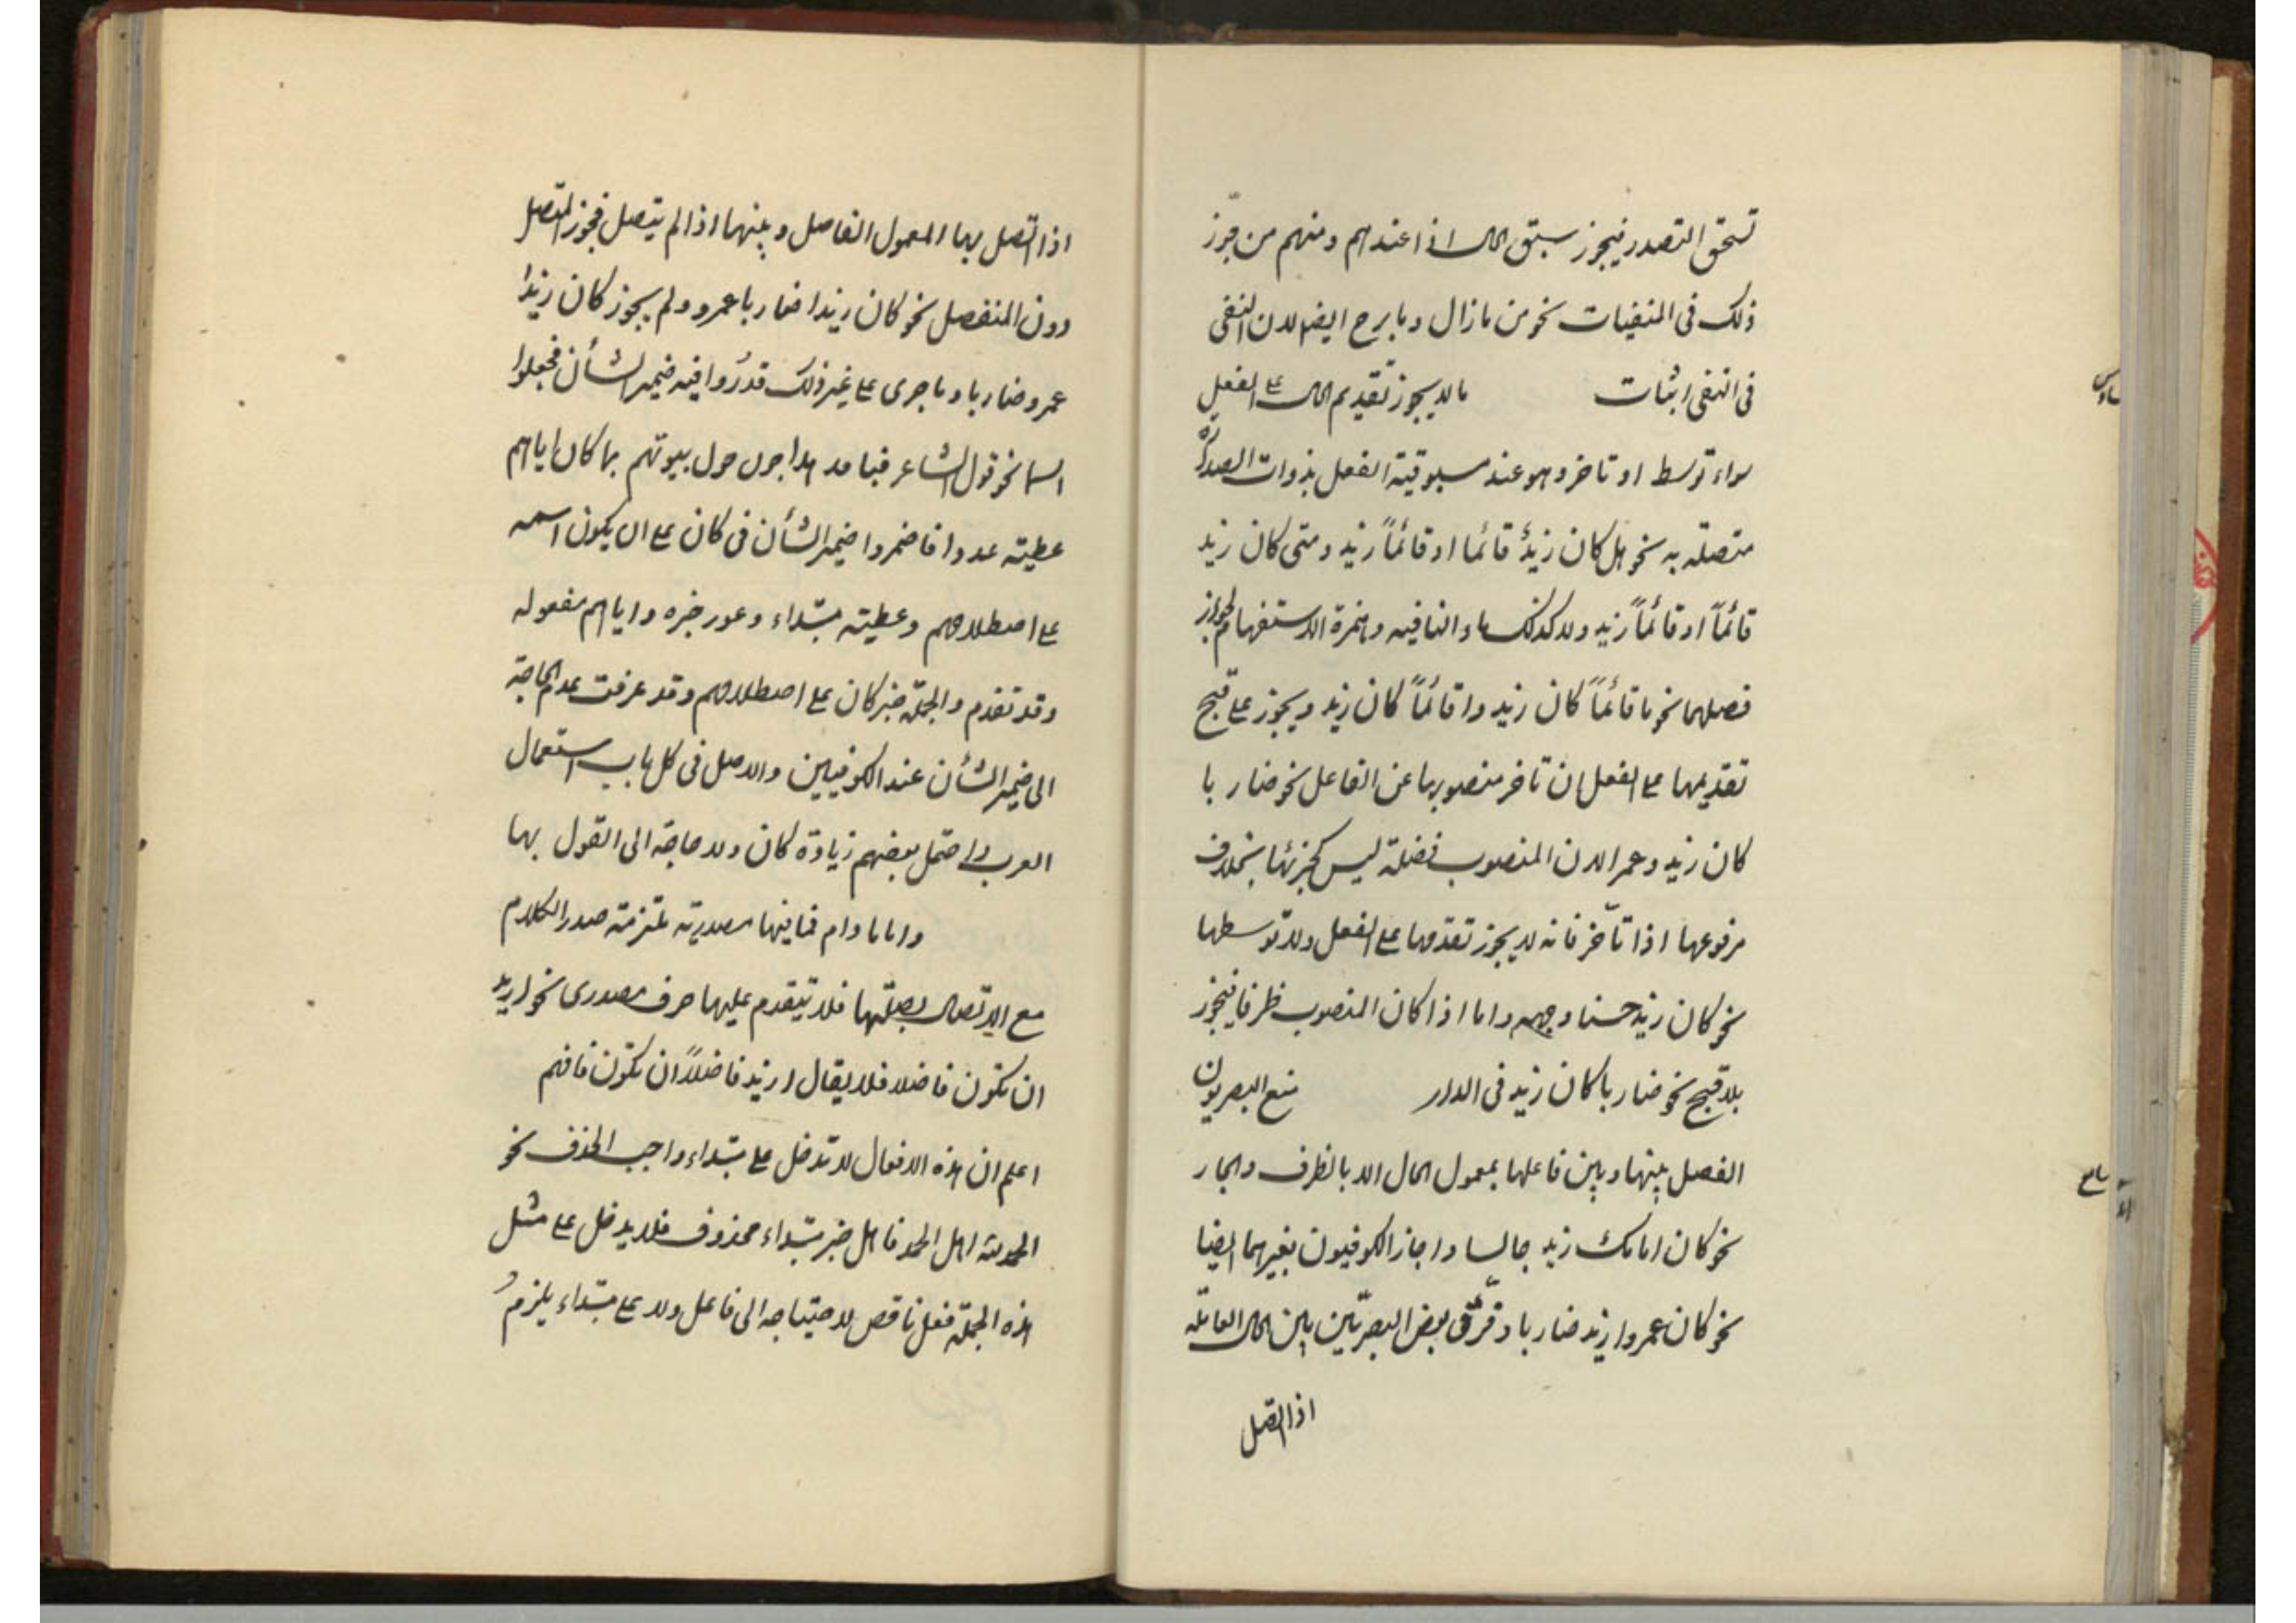 تستحق التصدر فيجوز سبق الحال اذا عندهم ومنهم من جوّز
ذلك فى المنفيات نحو من مازال وما برح ايضا لان النفى
فى النفى اثبات مالا يجوز تقديم الحال على الفعل
سواء توسط او تاخر وهو عند مسبوقية الفعل بذوات الصدارة
متصلة به نحو هل كان زيدٌ قائما او قائماً زيد ومتى كان زيد
قائماً او قائماً زيد ولا كذلك ماء النافيه وهمزة الاستفهام لجواز
فصلهما نحو ما قائماً كان زيد وا قائماً كان زيد ويجوز على قبح
تقديمها على الفعل ان تاخر منصوبها عن الفاعل نحو ضاربا
كان زيد وعمرا لان المنصوب فضلة ليس كجزئها بخلاف
مرفوعها اذا تأخر فانه لا يجوز تقدمها على الفعل ولا توسطها
نحو كان زيد حسنا وجهه واما اذا كان المنصوب ظرفا فيجوز
بلا قبح نحو ضاربا كان زيد فى الدار منع البصريون
الفصل بينها وبين فاعلها بمعمول الحال الا بالظرف والجار
نحو كان امامك زيد جالسا واجاز الكوفيون بغيرهما ايضا
نحو كان عمروا زيد ضاربا وفرّق بعض البصريّين بين الحال العاملة
اذا اتصل
اذا اتصل بها المعمول الفاصل وبينها اذا لم يتصل فجوز المتصل
دون المنفصل نحو كان زيدا ضاربا عمرو ولم يجوز كان زيدا
عمرو ضاربا وما جرى على غير ذلك قدروا فيه ضمير الشأن فجعلوا
اسما نحو قول الشاعر هداجون حول بيوتهم بما كان اياهم
عطيته عودا فاضمروا ضمير الشأن فى كان على ان يكون اسمه
على اصطلاحهم وعطيته مبتداء وعود خبره واياهم مفعوله
وقد تقدم والجملة خبر كان على اصطلاحهم وقد عرفت عدم الحاجة
الى ضمير الشأن عند الكوفيين والاصل فى كل باب استعمال
العرب واحتمل بعضهم زيادة كان ولا حاجة الى القول بها
واما مادام فما فيها مصدرية ملتزمة صدر الكلام
مع الاتصال بصلتها فلا يتقدم عليها حرف مصدرى نحو اريد
ان تكون فاضلا فلا يقال اريد فاضلاً ان تكون فافهم
اعلم ان هذه الافعال لا تدخل على مبتداء واجب الحذف نحو
الحمد لله اهل الحمد فاهل خبر مبتداء محذوف فلا يدخل على مثل
هذه الجملة فعل ناقص لاحتياجه الى فاعل ولا على مبتداء يلزم